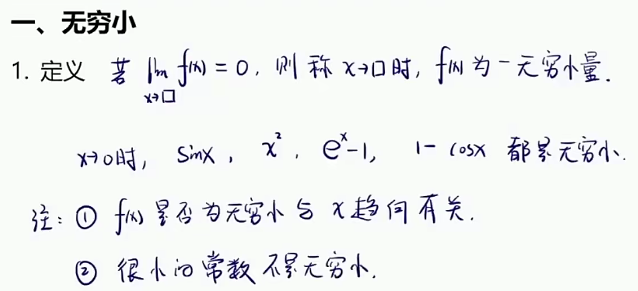 一、无穷小
1. 定义 若 lim f(x) = 0, 则称 x→□时, f(x)为一无穷小量.
x→□
x→0时, sinx, x², eˣ-1, 1-cosx 都是无穷小.
注: ① f(x)是否为无穷小与x趋向有关.
② 很小的常数不是无穷小.